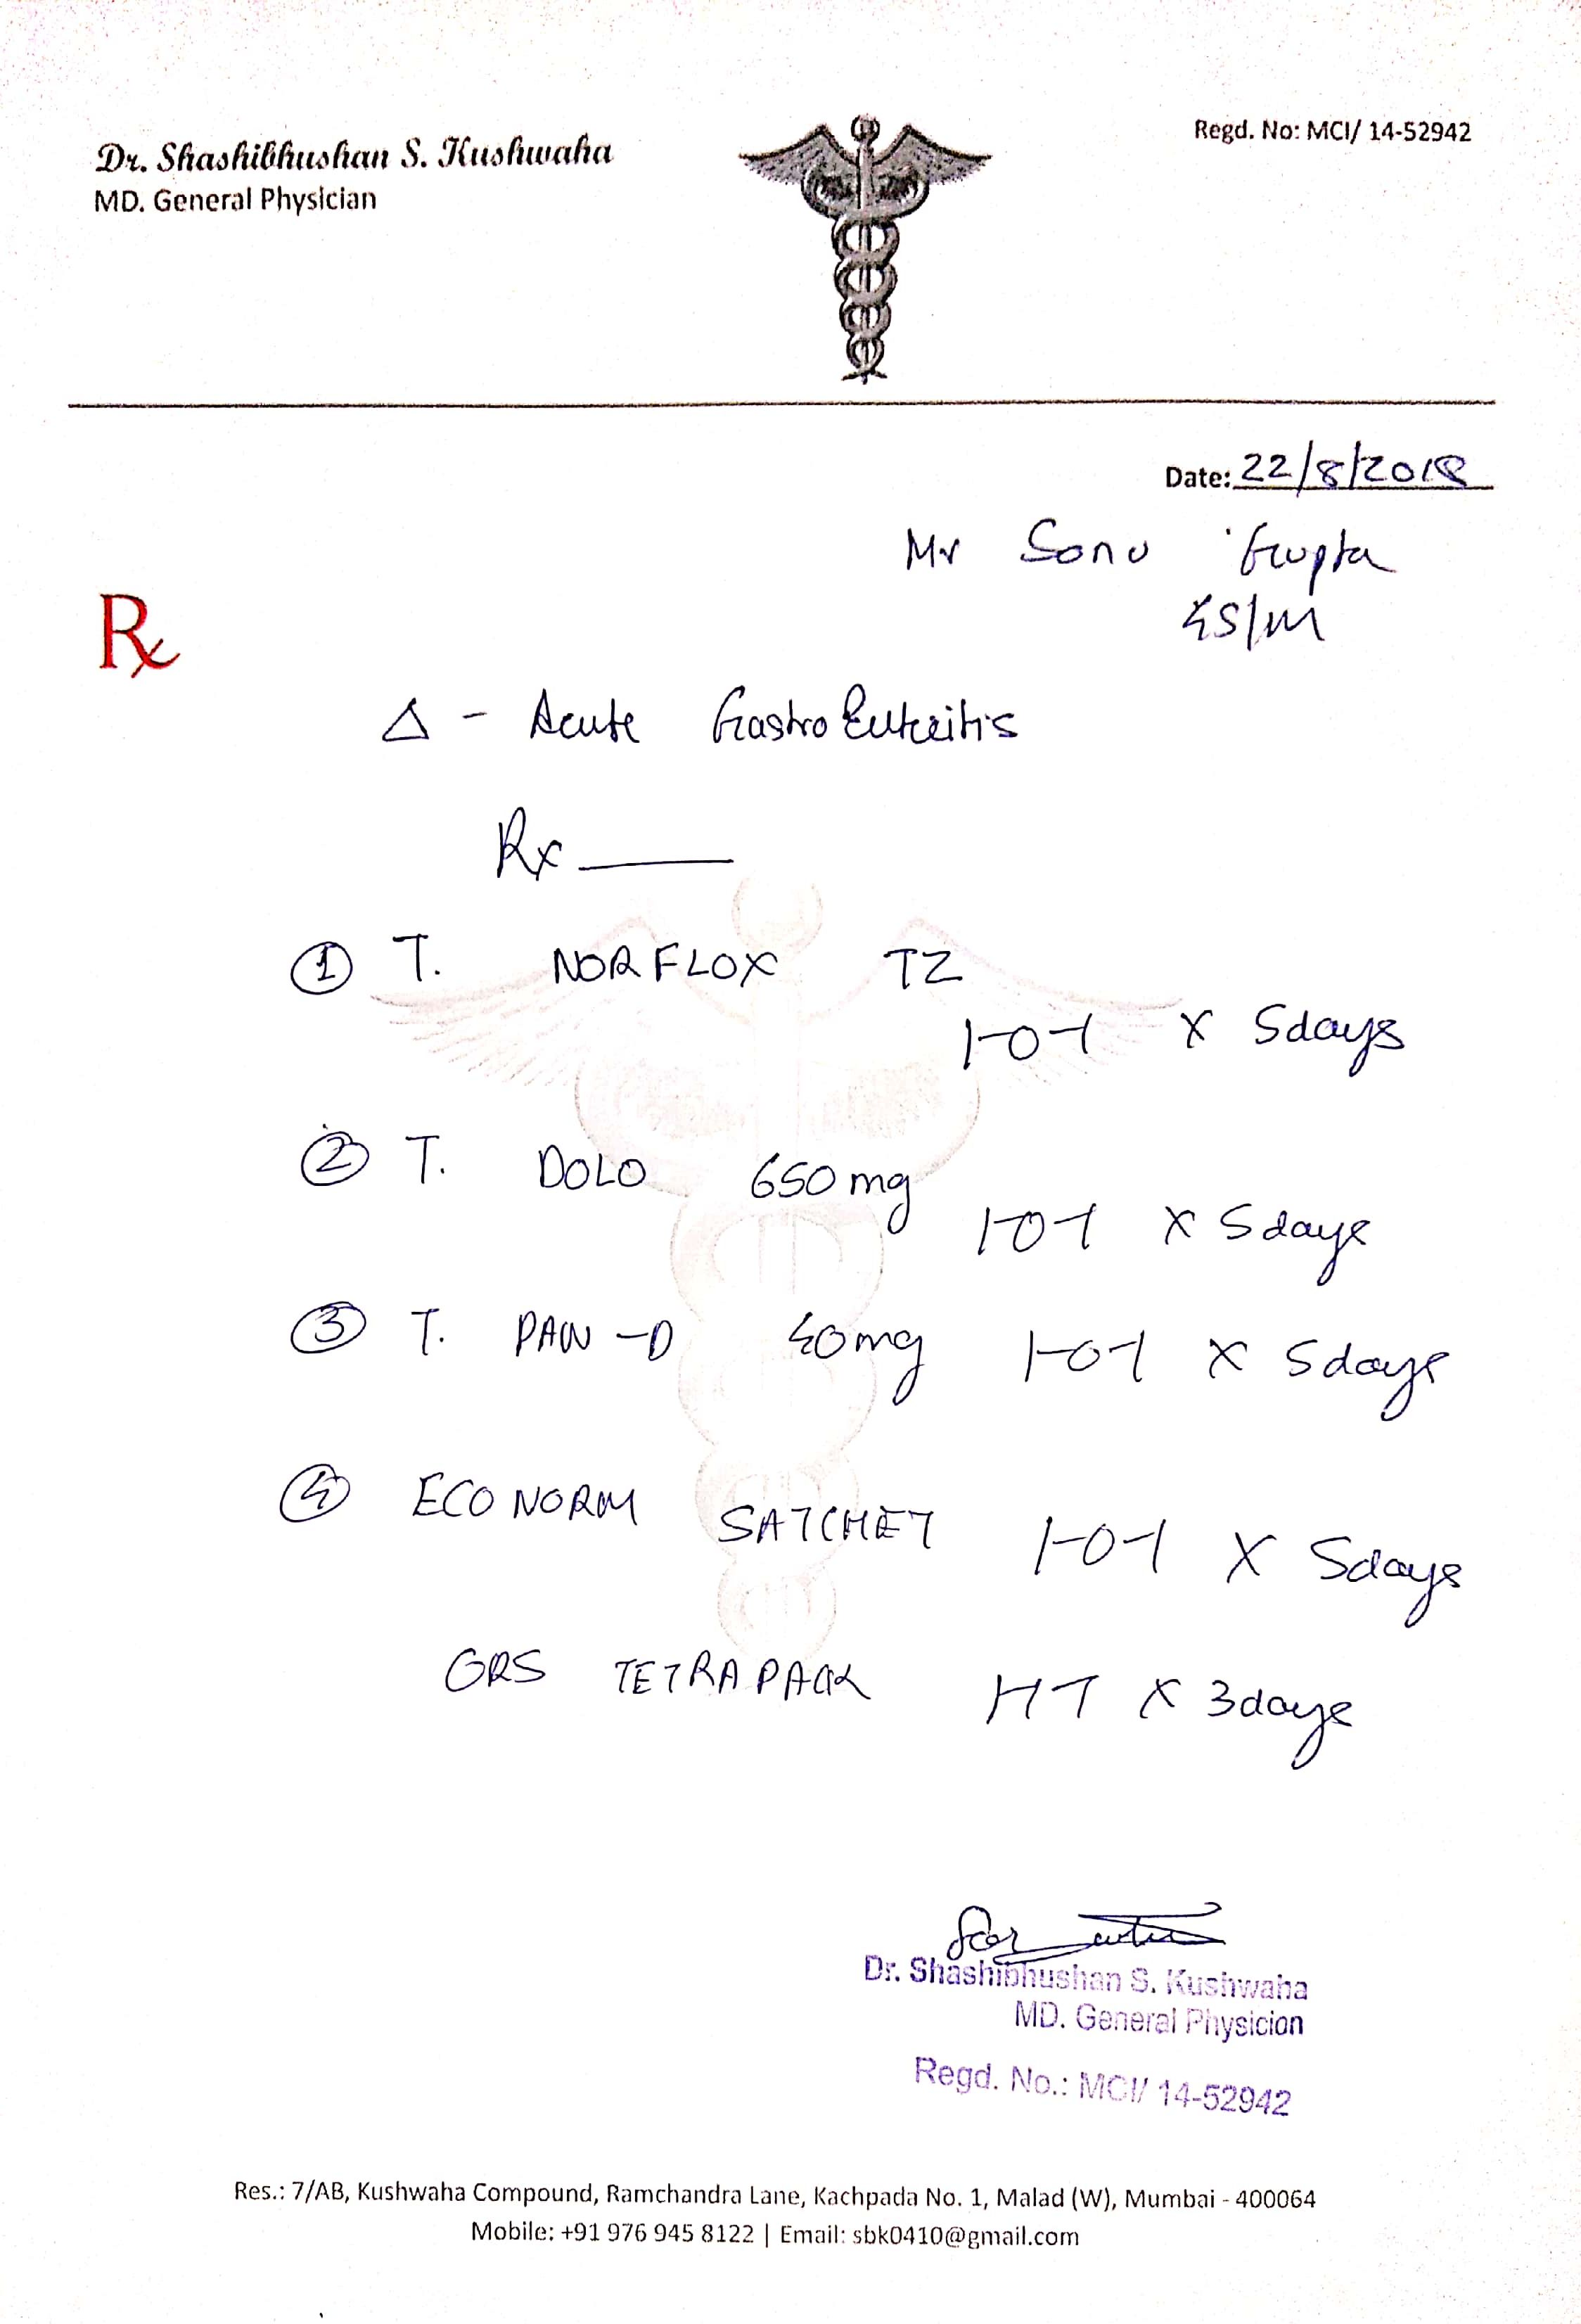 Dr. Shashibhushan S. Kushwaha
MD. General Physician
Regd. No: MCI/ 14-52942
Date: 22/8/2018
Mr Sonu Gupta
45/M
Rx
Δ - Acute Gastro Enteritis
Rx
① T. NORFLOX TZ
1-0-1 X 5days
② T. DOLO 650mg
1-0-1 X 5days
③ T. PAN-D 40mg 1-0-1 X 5days
④ ECONORM SATCHET 1-0-1 X 5days
ORS TETRAPACK X 3days
Dr. Shashibhushan S. Kushwaha
MD. General Physician
Regd. No.: MCI/ 14-52942
Res.: 7/AB, Kushwaha Compound, Ramchandra Lane, Kachpada No. 1, Malad (W), Mumbai - 400064
Mobile: +91 976 945 8122 | Email: sbk0410@gmail.com